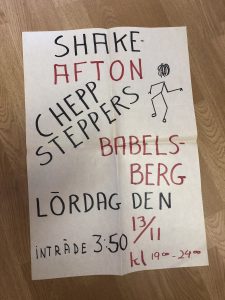 SHAKE-
AFTON
CHEPP
STEPPERS
BABELS-
BERG
LÖRDAG DEN
13/11
INTRÄDE 3:50
kl 19⁰⁰-24⁰⁰